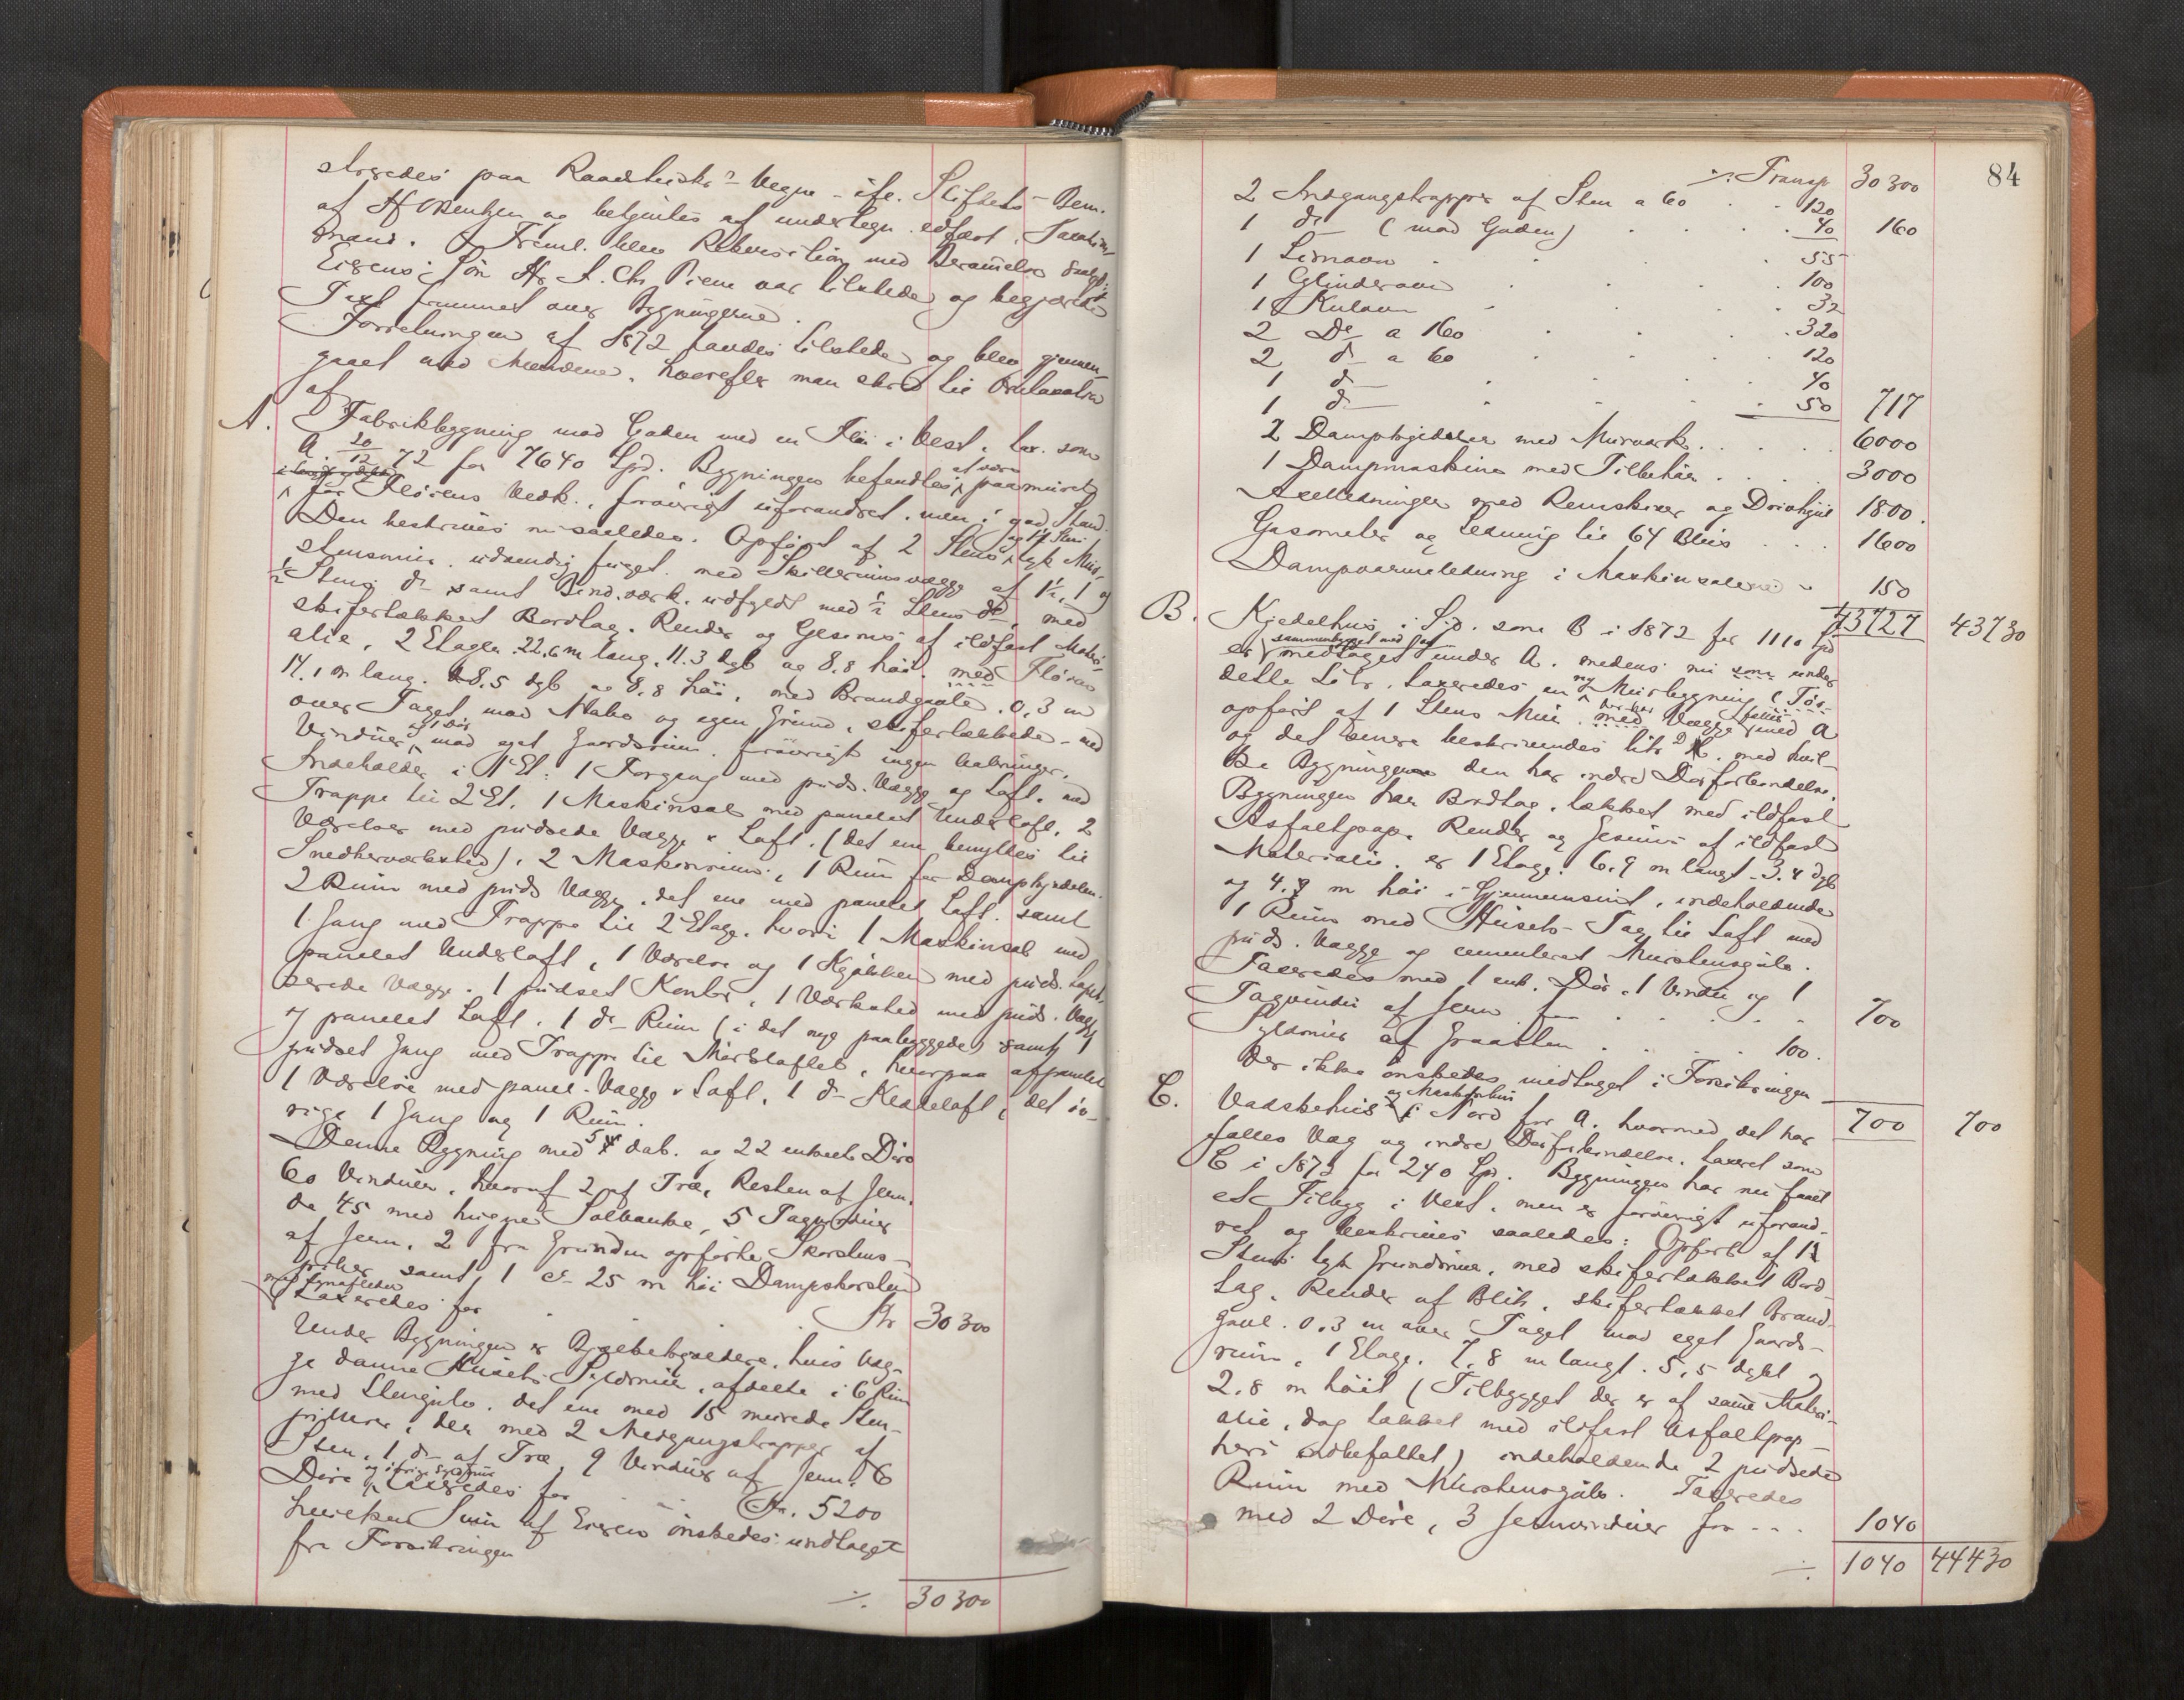 strødes paa Raadhuset Vegne - ifl. Stiftets Bem.
af og betjentes af undertegn. edfæst. Taxations-
mænd. Freml. blev Rekvisition med Berammelse
Eierens Søn Hr. A. Chr. Piene var tilstede og begjærede
Taxt fremmet over Bygningerne.
Forretningen af 1872 havdes tilstede og blev gjennem-
gaaet med Mændene, hvorefter man skred til Omtaxation
af
A. Fabrikbygning mod Gaden med en Fløi i Vest, tax. som
A. 20/12 72 for 7640 Spd. Bygningen befandtes at være paamuret
for Fløiens Vedk., forøvrigt uforandret, men i god Stand.
Den beskrives nu saaledes. Opført af 2 Stens og 1½ Sten tyk Mur-
stensmur udvendig fuget med Skillerumsvægge af 1½, 1 og
½ Stens do samt Bind.værk. udfyldt med ½ Stens do, med
skifertækket Bordtag. Render og Gesims af ildfast Materi-
alie, 2 Etager. 22,6 m lang, 11.3 dyb og 8,8 høi, med Fløien
14,1 m lang. 8,5 dyb og 8,8 høi, med Brandgavle 0,3 m
over Taget mod Nabo og egen Grund, skifertækkede - med
Vinduer og Dør mod eget Gaardsrum. forøvrigt ingen Aabninger.
Indeholder i 1 Et: 1 Forgang med puds. Vægge og Loft, med
Trappe til 2 Et. 1 Maskinsal med panelet Underloft, 2
Værelser med pudsede Vægge & Loft. (det ene benyttes til
Snedkerværksted), 2 Maskinrum, 1 Rum for Dampkjedelen.
2 Rum med puds Vægge, det ene med panelet Loft. samt
1 Gang med Trappe til 2 Etage. hvori 1 Maskinsal med
panelet Underloft, 1 Værelse og 1 Kjøkken med puds. tapet-
serede Vægge. 1 pudset Kontor, 1 Værksted med puds. Vægge
& panelet Loft. 1 do Rum (i det nye paabyggede) samt 1
pudset Gang med Trappe til Mørkloftet, hvorpaa afpanelet
1 Værelse med panel. Vægge & Loft. 1 do Klædeloft, det øv-
rige 1 Gang og 1 Rum.
Denne Bygning med 5 dob. og 22 enkelte Døre
60 Vinduer, hvoraf 2 af Træ, Resten af Jern.
de 45 med hugne Solbænke, 5 Tagvinduer
af Jern. 2 fra Grunden opførte Skorstens-
piber samt 1 do 25 m høi Dampskorsten
med Lynafleder
taxeredes for . . . Kr 30300
Under Bygningen er Hvælvetkjældere, hvis Væg-
ge danne Husets Fyldmur, afdelte i 6 Rum
med Stengulv. det ene med 15 murede Sten-
pillere, der med 2 Nedgangstrapper af
Sten, 1 do af Træ, 9 Vinduer af Jern, 6
Døre og øvrige Fyldmur taxeredes for . . . Kr. 5200
hvilken Sum af Eieren ønskedes undtaget
fra Forsikringen
./. 30300
84
./. Transp 30300
2 Indgangstrapper af Sten a 60 . . 120
1 do (mod Gaden) . . . . 40 160
1 Limovn . . . . 55
1 Cylinderovn . . . . 100
1 Kulovn . . . . 32
2 Do a 160 . . . . 320
2 do a 60 . . . . 120
1 do . . . . 40
1 do . . . . 50 717
2 Dampkjedeler med Murværk . . . . 6000
1 Dampmaskine med Tilbehør . . . . 3000
Axelledninger med Remskiver og Drivhjul 1800.
Gasometer og Ledning til 64 Blus . . . 1600
Dampvarmeledning i Maskinsalene 150
43727 43730
B. Kjedelhus i Syd. som B i 1872 for 1110 Spd
er sammenbygget med og medtaget under A. medens nu som under
dette Litr. taxeredes en ny Murbygning
opført af 1 Stens Mur. har fælles Vægge med A
og det senere beskrivendes litr D, med hvil-
ke Bygninger den har indre Dørforbindelse.
Bygningen har Bordtag, tækket med ildfast
Asfaltpap. Render og Gesims af ildfast
Materialie. er 1 Etage. 6,9 m langt. 3.4 dyb
og 4,8 m høi i Gjennemsnit, indeholdende
1 Rum med Husets Tag til Loft med
puds. Vægge og cementeret Murstensgulv.
Taxeredes med 1 enk. Dør, 1 Vindu og 1
Tagvindu af Jern for . . . . 700
Fyldmur af Graasten . . . . 100.
der ikke ønskedes medtaget i Forsikringen
700 700
C. Vadskehus og Maskinhus i Nord for A. hvormed det har
fælles Væg og indre Dørforbindelse. taxeret som
C i 1872 for 240 Spd. Bygningen har nu faaet
et Tilbyg i Vest, men er forøvrigt uforand-
ret og beskrives saaledes: Opført af 1½
Stens tyk Grundmur. med skifertækket Bord-
tag. Render af Blik, skifertækket Brand-
gavl. 0.3 m over Taget mod eget Gaards-
rum, 1 Etage. 7,8 m langt. 5,5 dybt og
2,8 m høit (Tilbygget der er af samme Materi-
alie, dog tækket med ildfast Asfaltpap -
heri indbefattet) indeholdende 2 pudsede
Rum med Murstensgulv. Taxeredes
med 2 Døre, 3 Jernvinduer for . . . 1040
./. 1040 44430